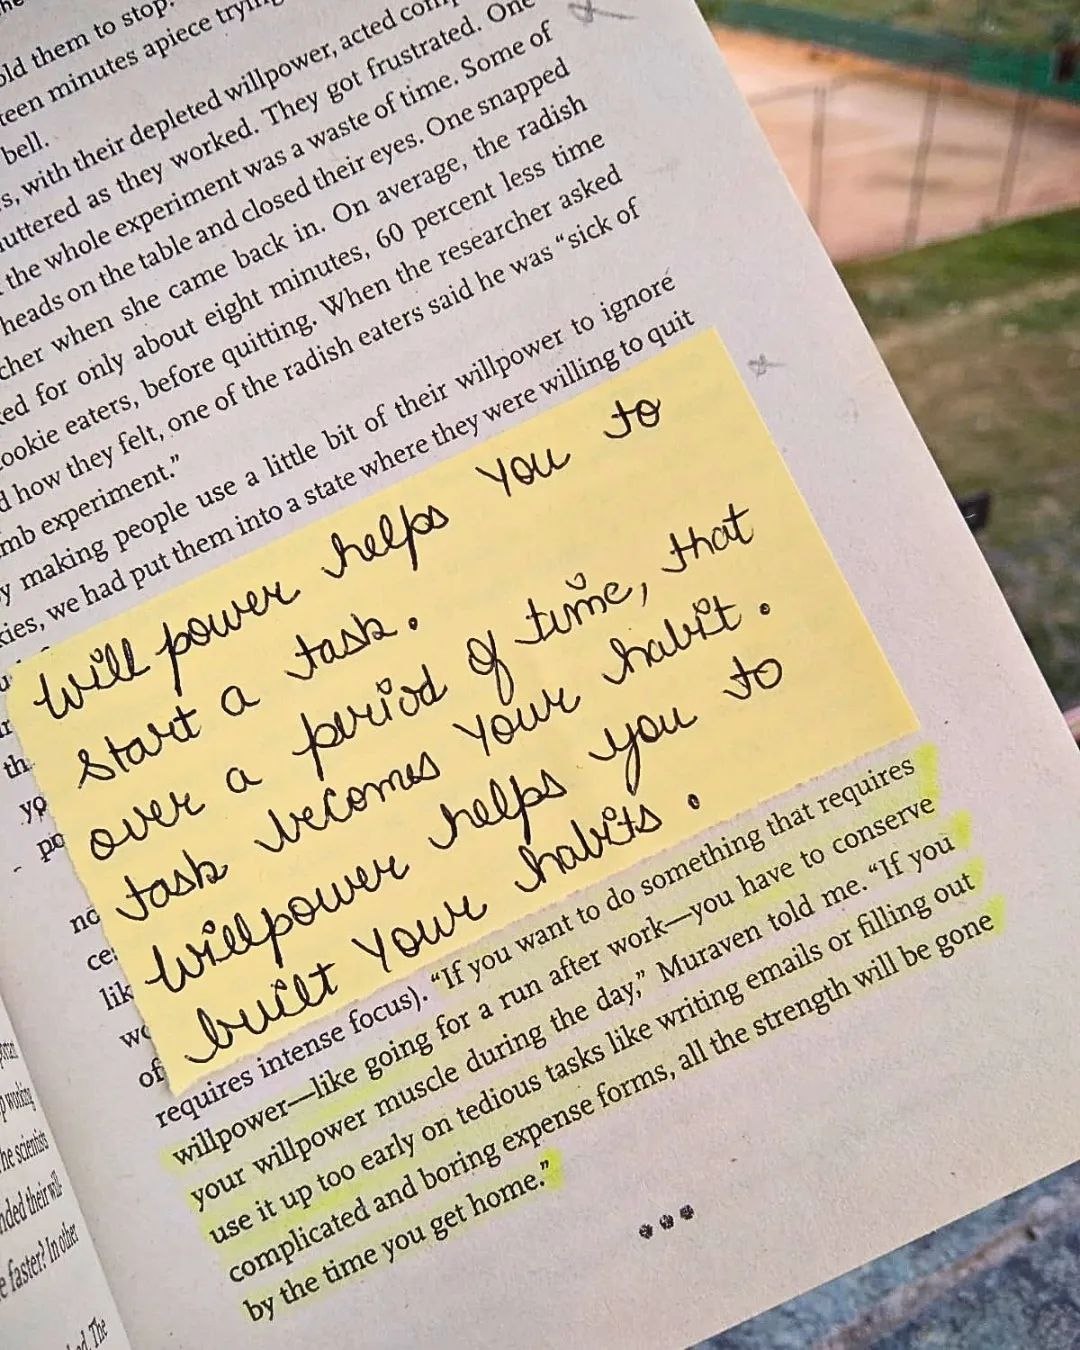 old them to stop.
teen minutes apiece
bell.
with their depleted willpower, acted
uttered as they worked. They got frustrated. One
the whole experiment was a waste of time. Some of
heads on the table and closed their eyes. One snapped
cher when she came back in. On average, the radish
ked for only about eight minutes, 60 percent less time
cookie eaters, before quitting. When the researcher asked
d how they felt, one of the radish eaters said he was “sick of
mb experiment.”
y making people use a little bit of their willpower to ignore
kies, we had put them into a state where they were willing to quit
Will power helps you to
start a task.
over a period of time, that
task becomes your habit.
Willpower helps you to
built your habits.
th
yo
po
no
ce
lik
wo
of
requires intense focus). “If you want to do something that requires
willpower—like going for a run after work—you have to conserve
your willpower muscle during the day,” Muraven told me. “If you
use it up too early on tedious tasks like writing emails or filling out
complicated and boring expense forms, all the strength will be gone
by the time you get home.”
p working
he scientists
nded their will-
e faster? In other
The